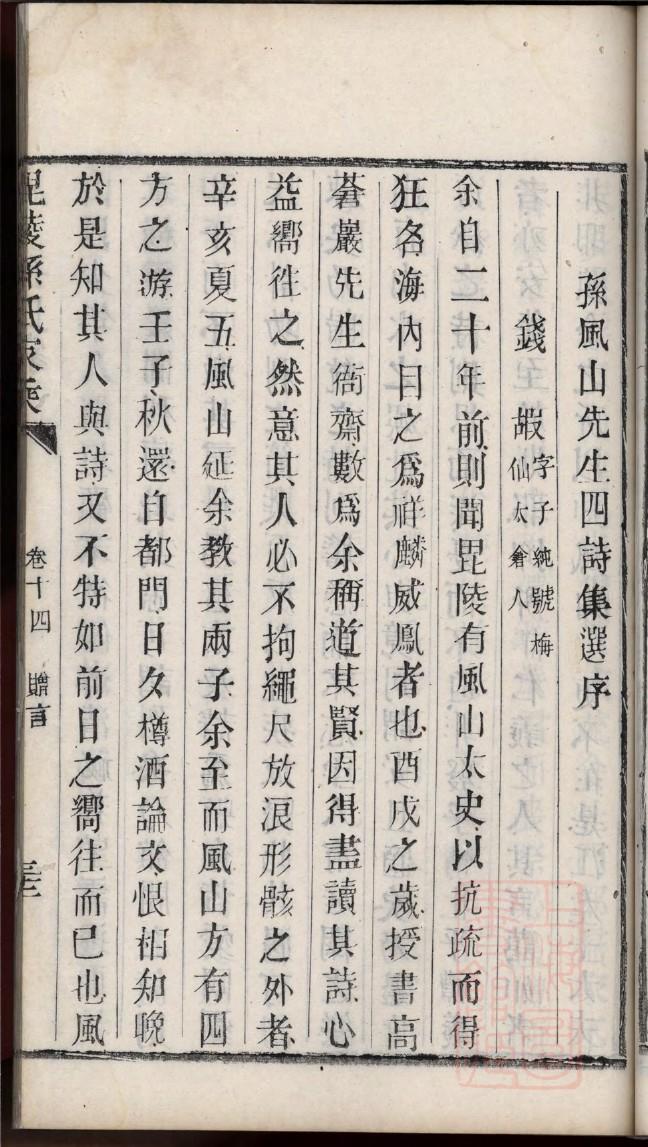 孫風山先生四詩集選序
錢嘏字子純號梅仙太倉人
余自二十年前則聞毘陵有風山太史以抗疏而得
狂名海內目之爲祥麟威鳳者也酉戌之歲授書高
蒼巖先生衙齋數爲余稱道其賢因得盡讀其詩心
益嚮徃之然意其人必不拘繩尺放浪形骸之外者
辛亥夏五風山延余教其兩子余至而風山方有四
方之游壬子秋還自都門日久樽酒論文恨相知晚
於是知其人與詩又不特如前日之嚮往而已也風
毘陵孫氏家乘 卷十四 贈言 三三